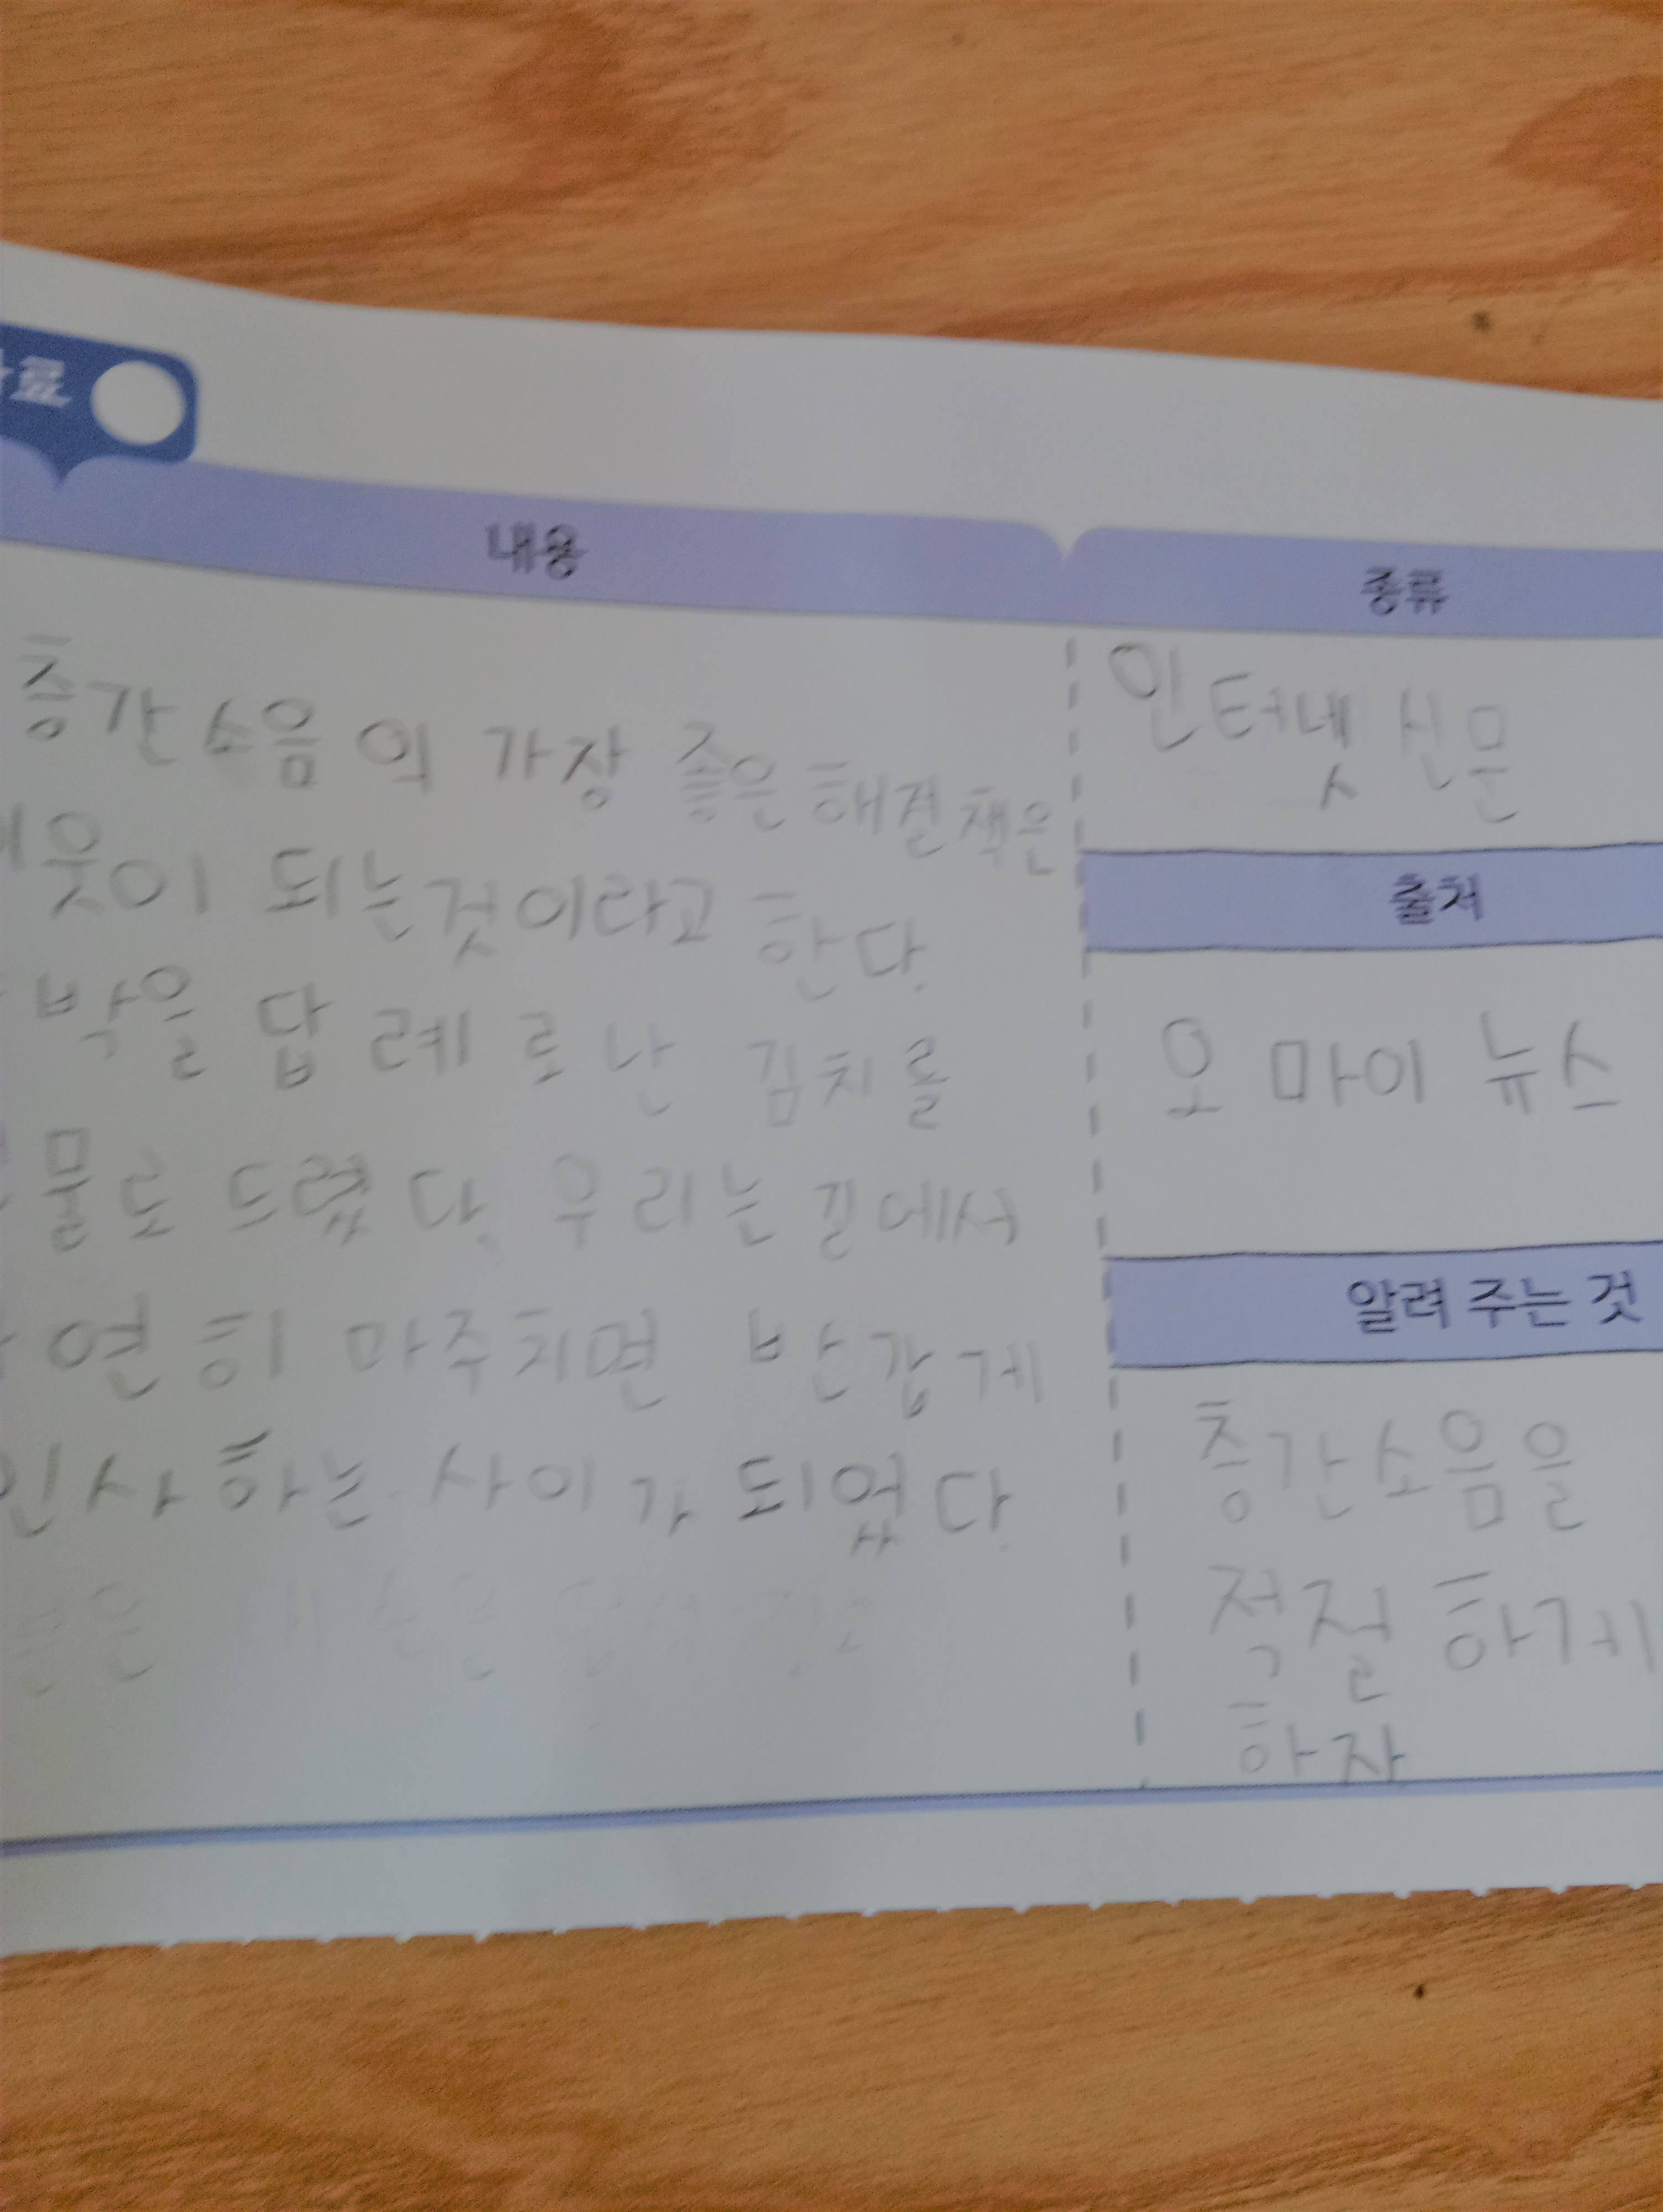 료
내용
층간소음의 가장 좋은 해결책은
웃이 되는것이라고 한다.
박을 답례로 난 김치를
물로 드렸다. 우리는 길에서
연히 마주치면 반갑게
인사 하는 사이가 되었다.
종류
인터넷 신문
출처
오 마이 뉴스
알려 주는 것
층간소음을
적절 하게
하자